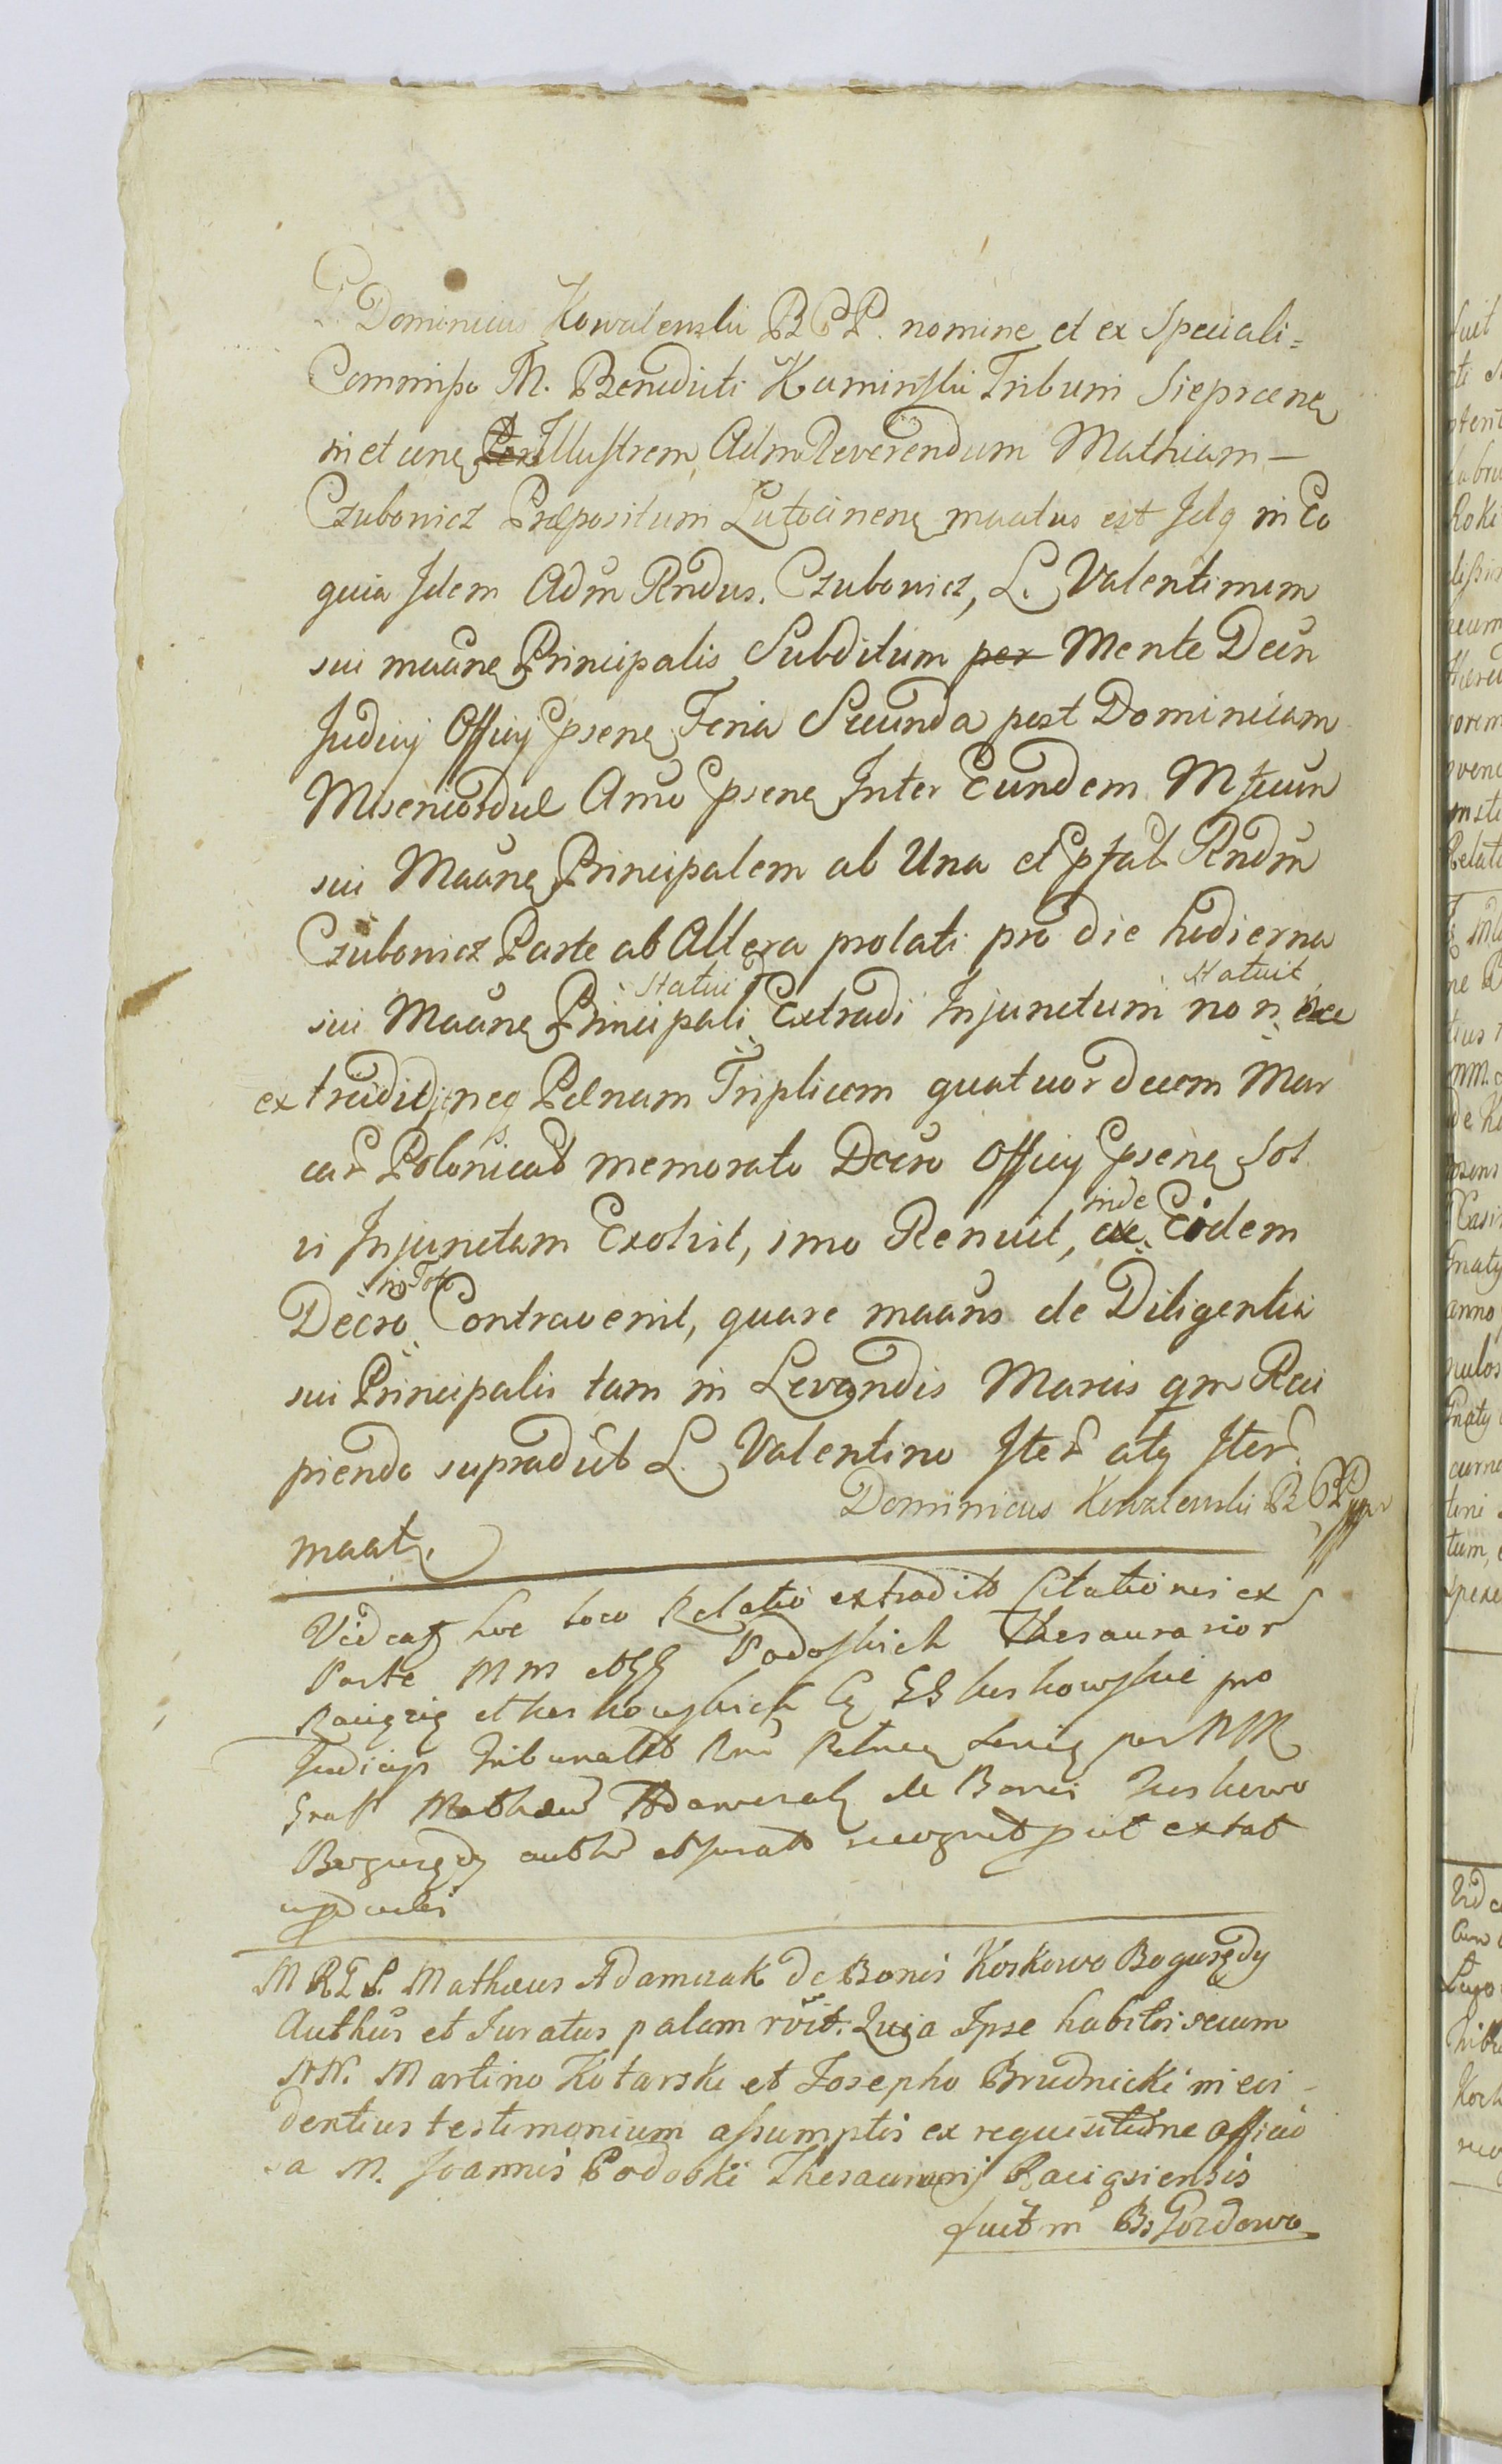 G. Dominicus Kowalewski B C P. nomine et ex Speciali=
Commisso M. Benedicti Kaminskii Tribuni Sieprcene
in et cune Illustrem Adm Reverendum Mathiam —
Czubowicz Præpositum Lutocinene maatus est Idq in Eo
quia Idem Adm Rndus. Czubowicz, L. Valentinum
sui maane Principalis Subditum per Mente Decn
Judicij Officij Psene Feria Secunda post Dominicam
Misericordiæ Anno Psene Inter Eundem Mfcum
sui Maane Principalem ab Una et Pfat Rndm
Czubowicz Parte ab Altera prolati pro die hodierna
Statui Statuit
sui Maane Principali Extradi Injunctum non exe
extradidit, neq Pænam Triplicem quatuordecem Mar
car Polonicas memorato Decro Officij Psene Sol
vi Injunctam Exolvit, imo Renuit, inde Eidem
in Toto
Decro Contravenit, quare maans de Diligentia
sui Principalis tam in Levandis Marcis qm Reci
piendo supradict L. Valentino Iter atq Iter
Dominicus Kowalewski B C P mpr
maat.
Videatz hoc loco Relatio extradit Citationis ex
Parte MM et GG Podoskich Thesaurarior
pro
Judicijs Tribunalit Rni
Mathæus Adamczak de Bonis Koskowo
Boguredy auth et jurat recognit put extat

M R T P. Mathæus Adamczak de Bonis Koskowo Boguredy
Authus et Juratus palam rvit. Quia Ipse habitis secum
NN. Martino Kotarski et Josepho Brudnicki in evi-
dentius testimonium assumptis ex requisitione officio
sa M. Joannis Podoski Thesaurarij Raciązsiensis
fuit in Bs Gozdowo